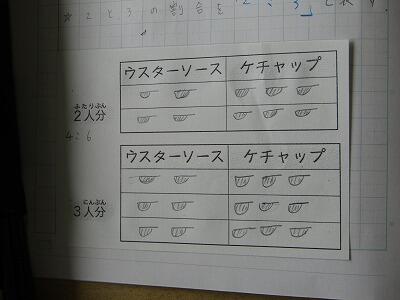 ★ 2 と 3 の割合を「2:3」と表す
ウスターソース ケチャップ
ふたりぶん
2人分
4:6
ウスターソース ケチャップ
にんぶん
3人分